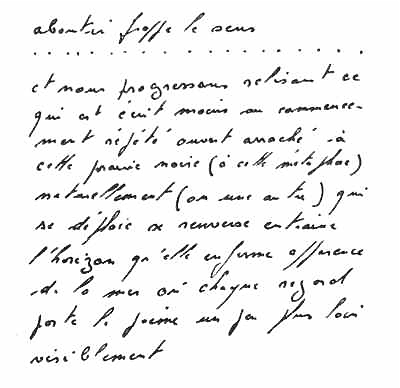 aboutir frappe le sens
. . . . . . . . . . . . . . . . . .
et nous progressons relisant ce
qui est écrit moins au commence-
ment répété ouvert arraché à
cette prairie noire (à cette métaphore)
naturellement (ou une autre) qui
se déploie se renverse entraîne
l'horizon qu'elle enferme apparence
de la mer où chaque regard
porte le poème un peu plus loin
visiblement